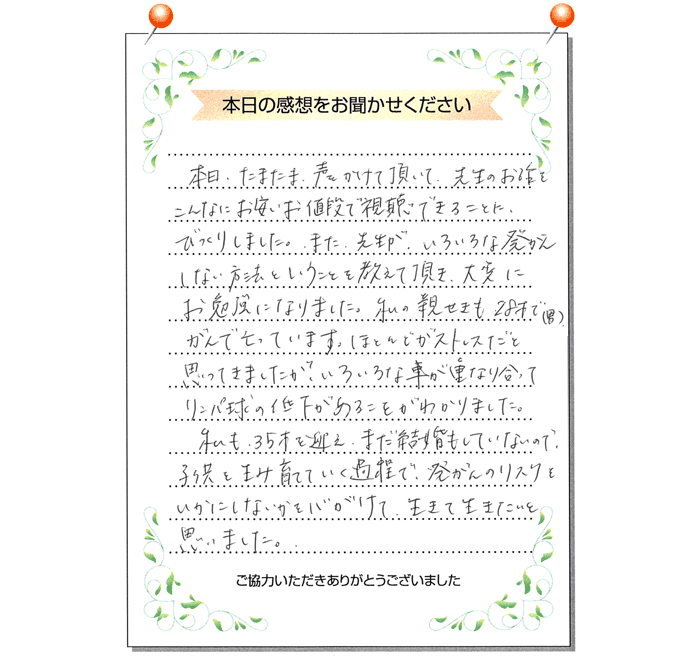 本日の感想をお聞かせください
本日、たまたま、声かけて頂いて、先生のお話を
こんなにお安いお値段で視聴できることに、
びっくりしました。また、先生が、いろいろな発がん
しない方法ということを教えて頂き、大変に
お勉強になりました。私の親せきも28才で(男)
がんで亡っています。ほとんどがストレスだと
思ってきましたが、いろいろな事が重なり合って
リンパ球の低下があることがわかりました。
私も、35才を迎え、まだ結婚もしていないので、
子供を生み育てていく過程で、発がんのリスクを
いかにしないかを心がけて、生きて生きたいと
思いました。
ご協力いただきありがとうございました